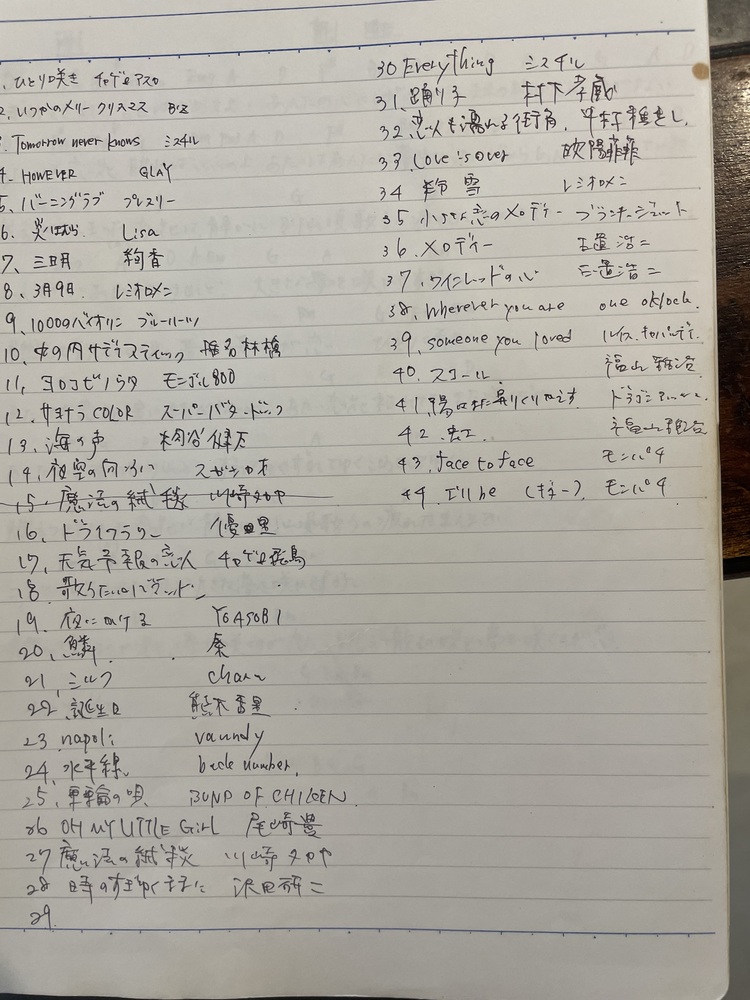 1. ひとり咲き チャゲ&アスカ
2. いつかのメリークリスマス B'z
3. Tomorrow never knows ミスチル
4. HOWEVER GLAY
5. バーニングラブ プレスリー
6. 炎 Lisa
7. 三日月 絢香
8. 3月9日 レミオロメン
9. 1000のバイオリン ブルーハーツ
10. 丸の内サディスティック 椎名林檎
11. ヨロコビノウタ モンゴル800
12. サヨナラCOLOR スーパーバタードッグ
13. 海の声 桐谷健太
14. 夜空の向こうに スガシカオ
15. 魔法の絨毯 川崎タカヤ
16. ドライフラワー 優里
17. 天気予報の恋人 チャゲ&飛鳥
18. 歌うたいのバラッド
19. 夜にかける YOASOBI
20. 鱗 秦
21. ミルク chara
22. 誕生日 熊木杏里
23. napoli vaundy
24. 水平線 back number.
25. 車輪の唄 BUNP OF CHIKEN
26 OH MY LITTLE GirL 尾崎豊
27 魔法の絨毯 川崎タカヤ
28 時のすぎゆくままに 沢田研二
29.
30 Everything ミスチル
31. 踊り子 村下孝蔵
32. 恋人も濡れる街角.
33. Love is over 欧陽菲菲
34 粉雪 レミオロメン
35 小さな恋のメロディー ブランキージェット
36. メロディー 玉置浩二
37. ワインレッドの心 玉置浩二
38. Wherever you are one ok rock.
39. someone you loved ルイス・キャパルディ.
40. スコール. 福山雅治
41. 陽はまた昇りくりかえす ドラゴンアッシュ
42. 虹 福山雅治
43. face to face モンパチ
44. I'll be (ギター) モンパチ